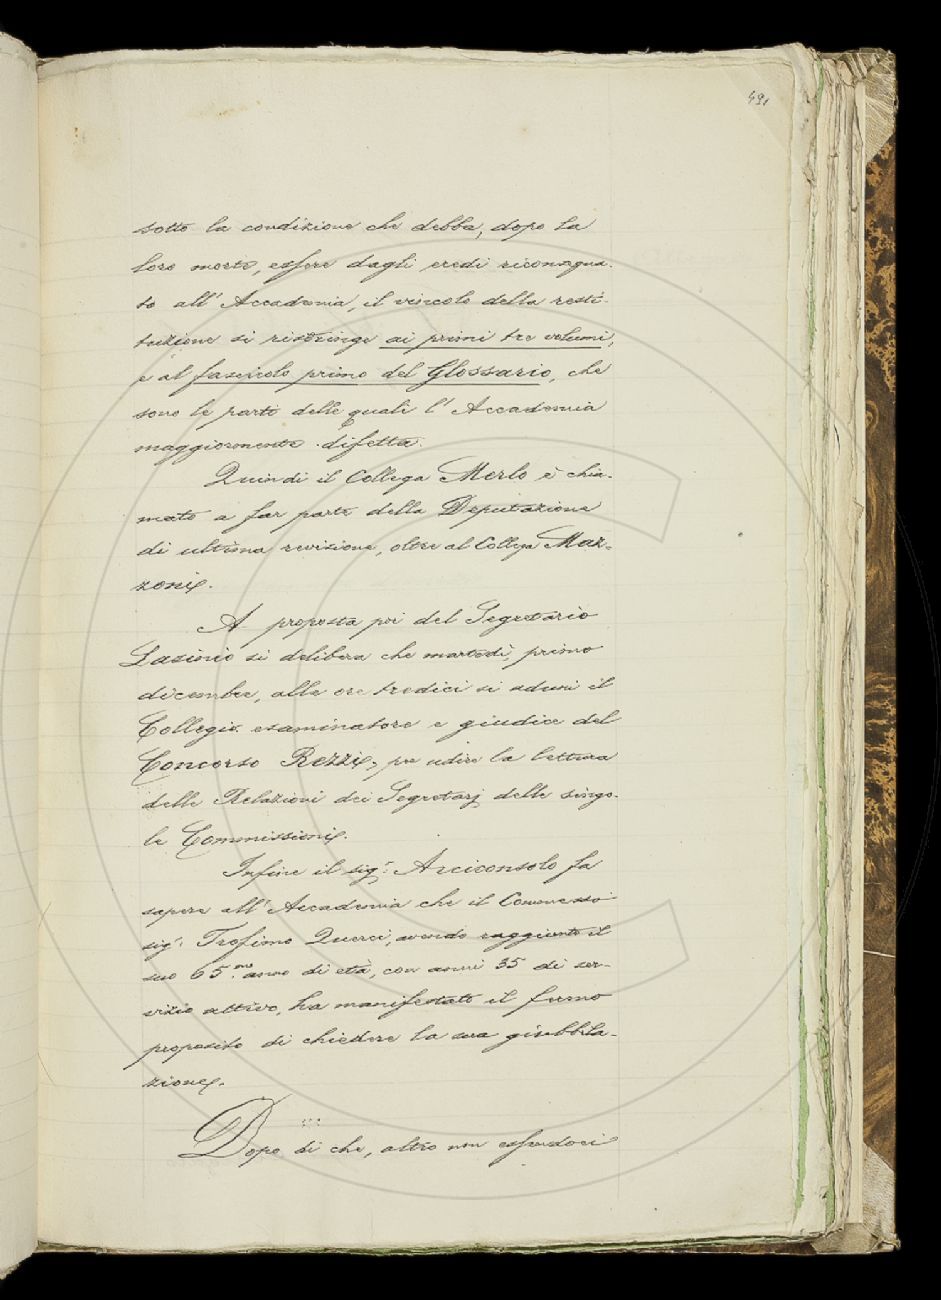 491
sotto la condizione che debba, dopo la
loro morte, essere dagli eredi riconsegna-
to all'Accademia, il vincolo della resti-
tuzione si ristringe ai primi tre volumi,
e al fascicolo primo del Glossario, che
sono le parti delle quali l'Accademia
maggiormente difetta.
Quindi il Collega Merlo è chia-
mato a far parte della Deputazione
di ultima revisione, oltre al Collega Maz-
zoni.
A proposta poi del Segretario
Lasinio si delibera che martedì, primo
dicembre, alle ore tredici si aduni il
Collegio esaminatore e giudice del
Concorso Rezzi, per udire la lettura
delle Relazioni dei Segretarj delle singo-
le Commissioni.
Infine il sig.r Arciconsolo fa
sapere all'Accademia che il Commesso
sig.r Trofimo Querci, avendo raggiunto il
suo 65.mo anno di età, con anni 35 di ser-
vizio attivo, ha manifestato il fermo
proposito di chiedere la sua giubbila-
zione.
Dopo di che, altro non essendoci